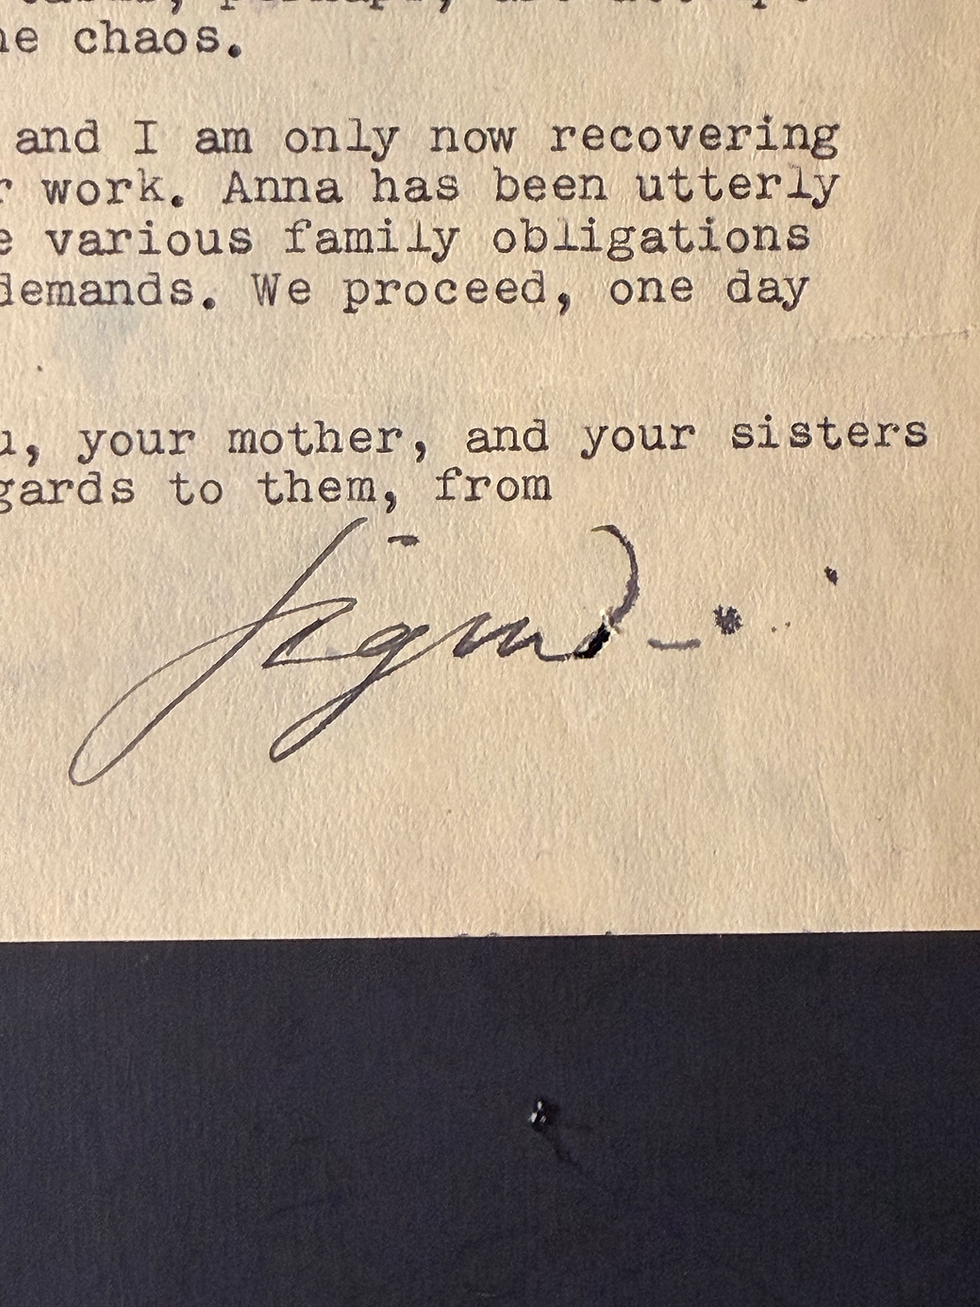 he chaos.
and I am only now recovering
r work. Anna has been utterly
e various family obligations
demands. We proceed, one day
u, your mother, and your sisters
gards to them, from
Sigmd